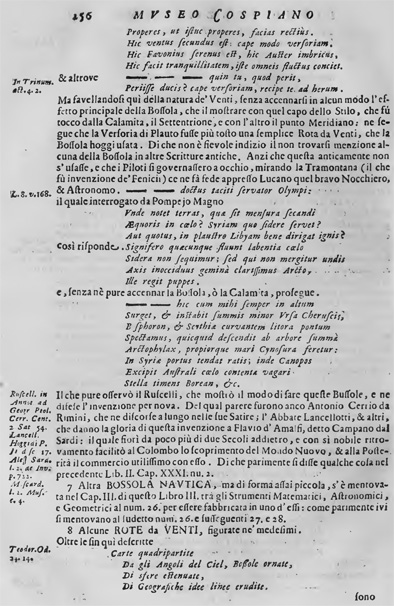 256 MVSEO COSPIANO
Properet, ut istinc properes, facias rectius.
Hic ventus secundus est: cape modo versoriam.
Hic Favonius serenus est, hic Auster imbricus,
Hic facit tranquillitatem, iste omneis fluctus conciet.
In Trinum. act. 4. 2.
& altrove — quin tu, quod peris,
Periisse ducis? cape versoriam, recipe te ad herum.
Ma favellandosi qui della natura de' Venti, senza accennarsi in alcun modo l'ef-
fetto principale della Bossola, che il mostrare con quel capo dello Stilo, che fù
tocco dalla Calamita, il Settentrione, e con l'altro il punto Meridiano: ne se-
gue che la Versoria di Plauto fusse più tosto una semplice Rota da Venti, che la
Bossola hoggi usata. Di che non è fievole indizio il non trovarsi menzione al-
cuna della Bossola in altre Scritture antiche. Anzi che questa anticamente non
s'usasse, e che i Piloti si governassero a occhio, mirando la Tramontana (il che
fù invenzione de' Fenici) ce ne fà fede appresso Lucano quel bravo Nocchiero,
L. 8. v. 168.
& Astronomo. — doctus taciti servator Olympi:
il quale interrogato da Pompejo Magno
Vnde notet terras, qua sit mensura secandi
Æquoris in cælo? Syriam quo sidere servet?
Aut quotus, in plaustro Libyam bene dirigat ignis?
così risponde. Signifero quæcunque fluunt labentia cælo
Sidera non sequimur; sed qui non mergitur undis
Axis inocciduus geminâ clarissimus Arcto,
Ille regit puppes.
e, senza nè pure accennar la Bossola, ò la Calamita, prosegue.
— hic cum mihi semper in altum
Surget, & instabit summis minor Vrsa
Bosphoron, & Scythiæ curvantem litora pontum
Spectamus, quicquid descendit ab arbore summâ
Arctophylax, propiorque mari Cynosura feretur:
In Syriæ portus tendat ratis; inde Canopos
Excipit Australi cælo contenta vagari
Stella timens Borean, &c.
Ruscell. in
Il che pure osservò il Ruscelli, che mostrò il modo di far queste Bussole, e ne
difese l'invenzione per nova. Del qual parere furono anco Antonio Cerrio da
Rimini, che ne discorse a lungo nelle sue Satire; l'Abbate Lancellotti, & altri,
che danno la gloria di questa invenzione a Flavio d'Amalfi, detto Campano dal
Sardi: il quale fiorì da poco più di due Secoli addietro, e con sì nobile ritro-
vamento facilitò al Colombo lo scoprimento del Mondo Nuovo, & alla Poste-
rità il commercio utilissimo con esso. Di che parimente si disse qualche cosa nel
precedente Lib. II. Cap. XXXI. nu. 2.
7 Altra BOSSOLA NAVTICA, ma di forma assai piccola, s'è mentova-
ta nel Cap. III. di questo Libro III. trà gli Strumenti Matematici, Astronomici,
e Geometrici al num. 26. per essere fabbricata in uno d'essi: come parimente ivi
si mentovano al sudetto num. 26. e sussieguenti 27. e 28.
8 Alcune ROTE da VENTI, figurate ne' medesimi.
Oltre le sin qui descritte
Carte quadripartite
Da gli Angoli del Ciel, Bossole ornate,
Di sfere estenuate,
Di Geografiche idee linee erudite.
sono